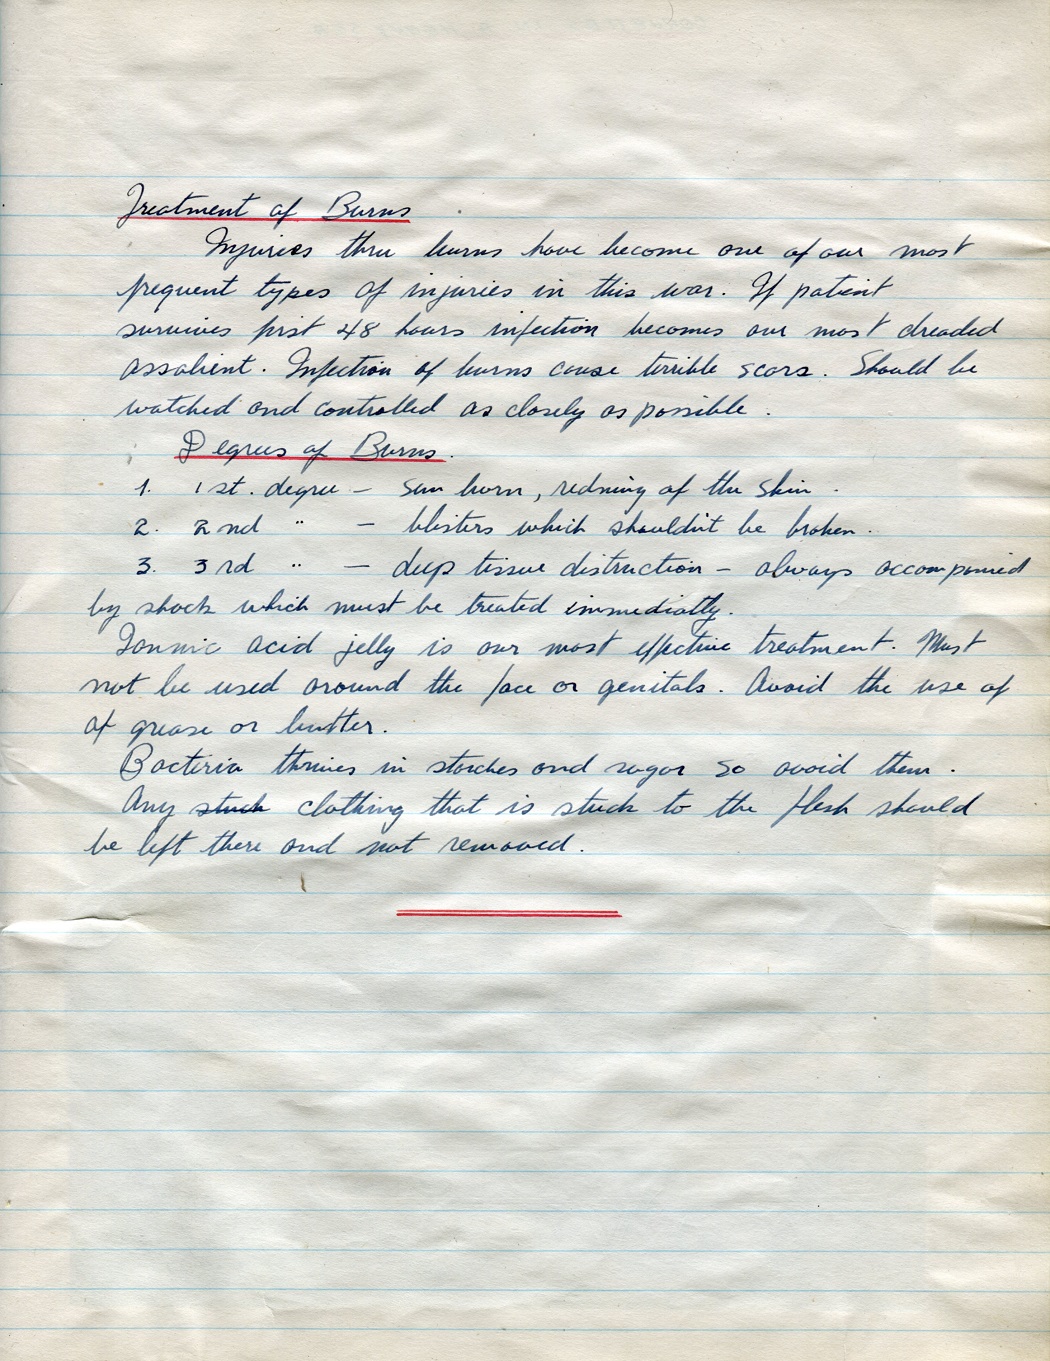 Treatment of Burns
Injuries thru burns have become one of our most
frequent types of injuries in this war. If patient
survives first 48 hours infection becomes our most dreaded
assalient. Infection of burns cause terrible scars. Should be
watched and controlled as closely as possible.
Degrees of Burns.
1. 1st. degree - sun burn, redning of the skin.
2. 2nd " - blisters which shouldn't be broken.
3. 3rd " - deep tissue distruction - always accompanied
by shock which must be treated immediatly.
Tannic acid jelly is our most effective treatment. Must
not be used around the face or genitals. Avoid the use of
of grease or butter.
Bacteria thrives in starches and sugar so avoid them.
Any stuck clothing that is stuck to the flesh should
be left there and not removed.